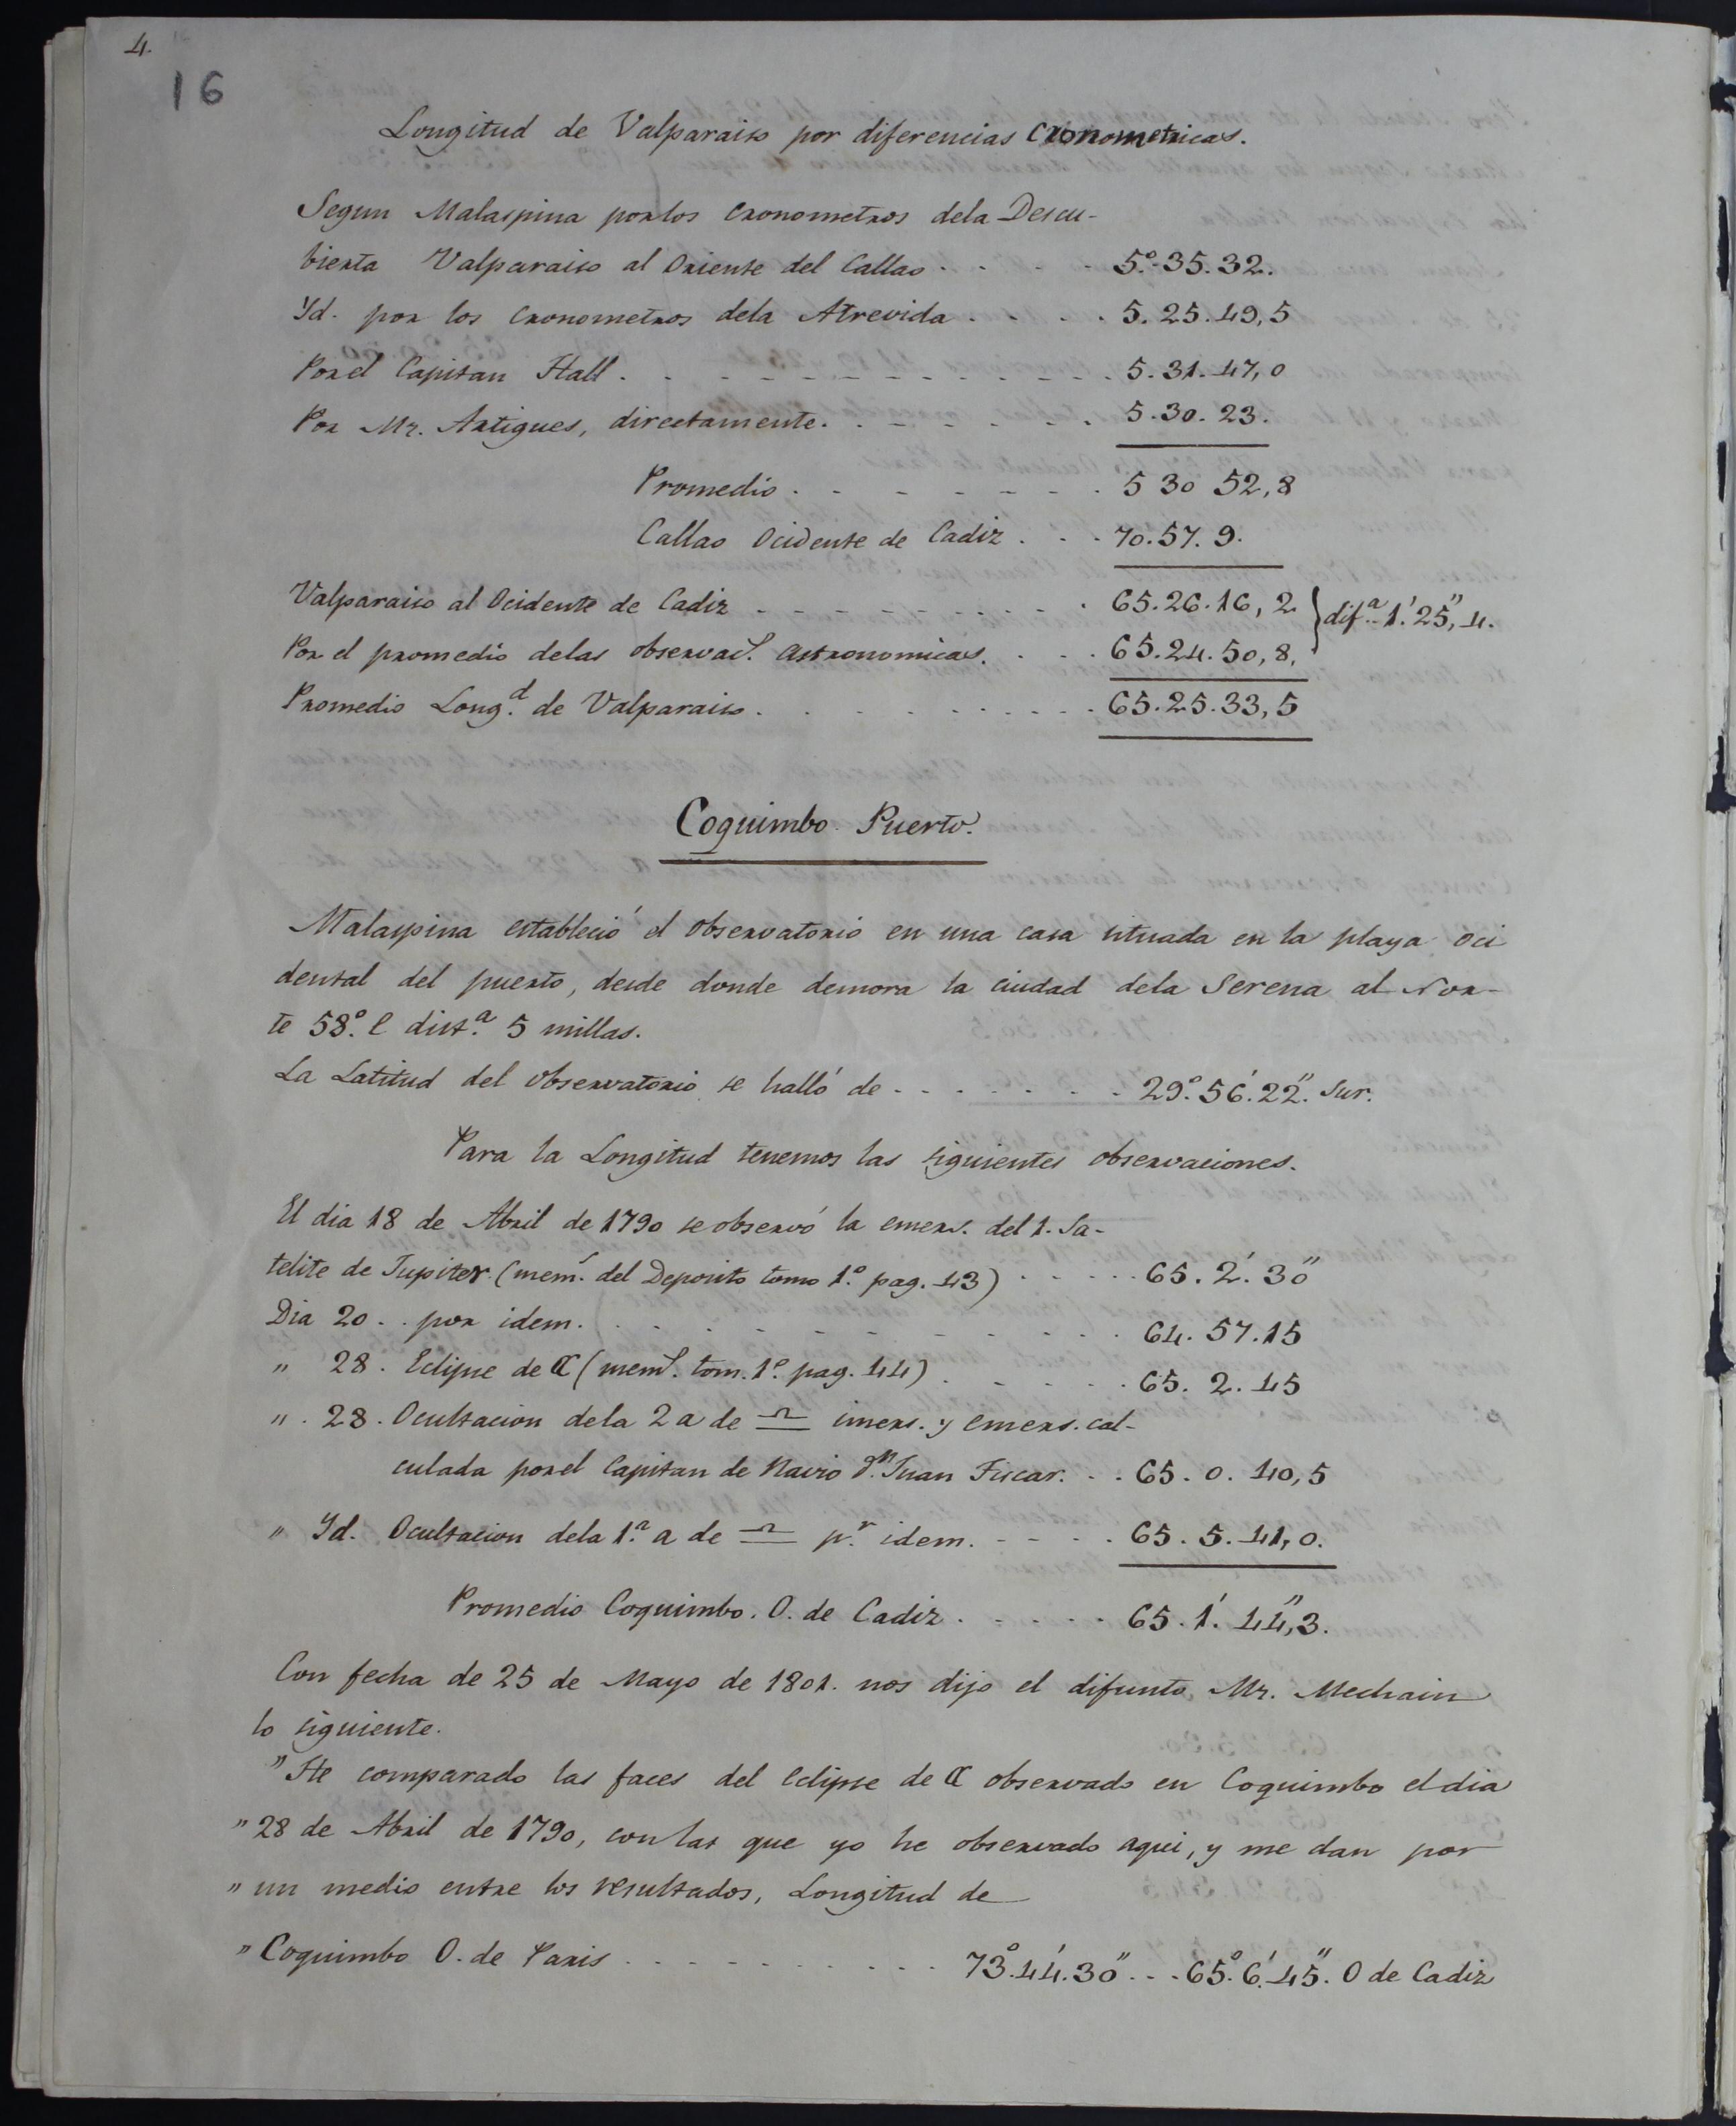 4.
16
Longitud de Valparaiso por diferencias Cronometricas.
Segun Malaspina por los Cronometros dela Descu-
bierta Valparaiso al Oriente del Callao . . . . 5.° 35. 32.
Yd. por los Cronometros dela Atrevida . . . . 5. 25. 49,5
Por el Capitan Hall . . . . . . . . . . . 5. 31. 47,0
Por Mr. Artigues, directamente. . . . . . . 5. 30. 23.
Promedio . . . . . . . 5 30 52,8
Callao Ocidente de Cadiz . . . 70. 57. 9.
Valparaiso al Ocidente de Cadiz . . . . . . . . . 65. 26. 16, 2. } dif.ª 1.' 25,'' 4.
Por el promedio delas observac.s Astronomicas. . . . 65. 24. 50, 8,
Promedio Long.d de Valparaiso . . . . . . . . . . 65. 25. 33, 5
Coquimbo Puerto.
Malaspina estableció el Observatorio en una casa situada en la playa oci
dental del puerto, desde donde demora la ciudad dela Serena al Nor-
te 58.° E dist.ª 5 millas.
La Latitud del Observatorio se halló de . . . . . . . 29.° 56.' 22.'' Sur.
Para la Longitud tenemos las siguientes observaciones.
El dia 18 de Abril de 1790 se observó la emers. del 1. Sa-
telite de Jupiter (mem.s del Deposito tomo 1.° pag. 43) . . . . . 65. 2.' 30''
Dia 20 . . por idem. . . . . . . . . . . . 64. 57. 15
" 28. Eclipse de ☾ (mem.s tom. 1.° pag. 44) . . . . . 65. 2. 45
" . 28. Ocultacion dela 2 a de ♎ imers. y emers. cal-
culada por el Capitan de Navio d.n Juan Tiscar. . . 65. 0. 40,5
" Yd. Ocultacion dela 1.ª a de ♎ p.r idem. . . . . 65. 5. 41, 0.
Promedio Coquimbo. O. de Cadiz . . . . . 65. 1.' 44,''3.
Con fecha de 25 de Mayo de 1801. nos dijo el difunto Mr. Mechain
lo siguiente.
" He comparado las faces del eclipse de ☾ observado en Coquimbo el dia
" 28 de Abril de 1790, con las que yo he observado aqui, y me dan por
" un medio entre los resultados, Longitud de
" Coquimbo O. de Paris . . . . . . . . . . 73.° 44.' 30'' . . . 65.° 6.' 45.'' O de Cadiz